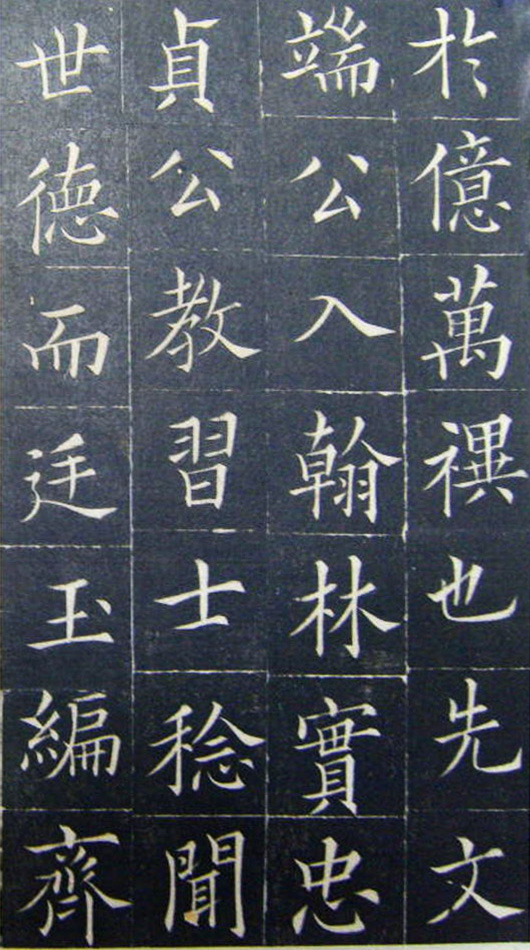 於億萬禩也先文
端公入翰林實忠
貞公教習士稔聞
世徳而廷玉編齊